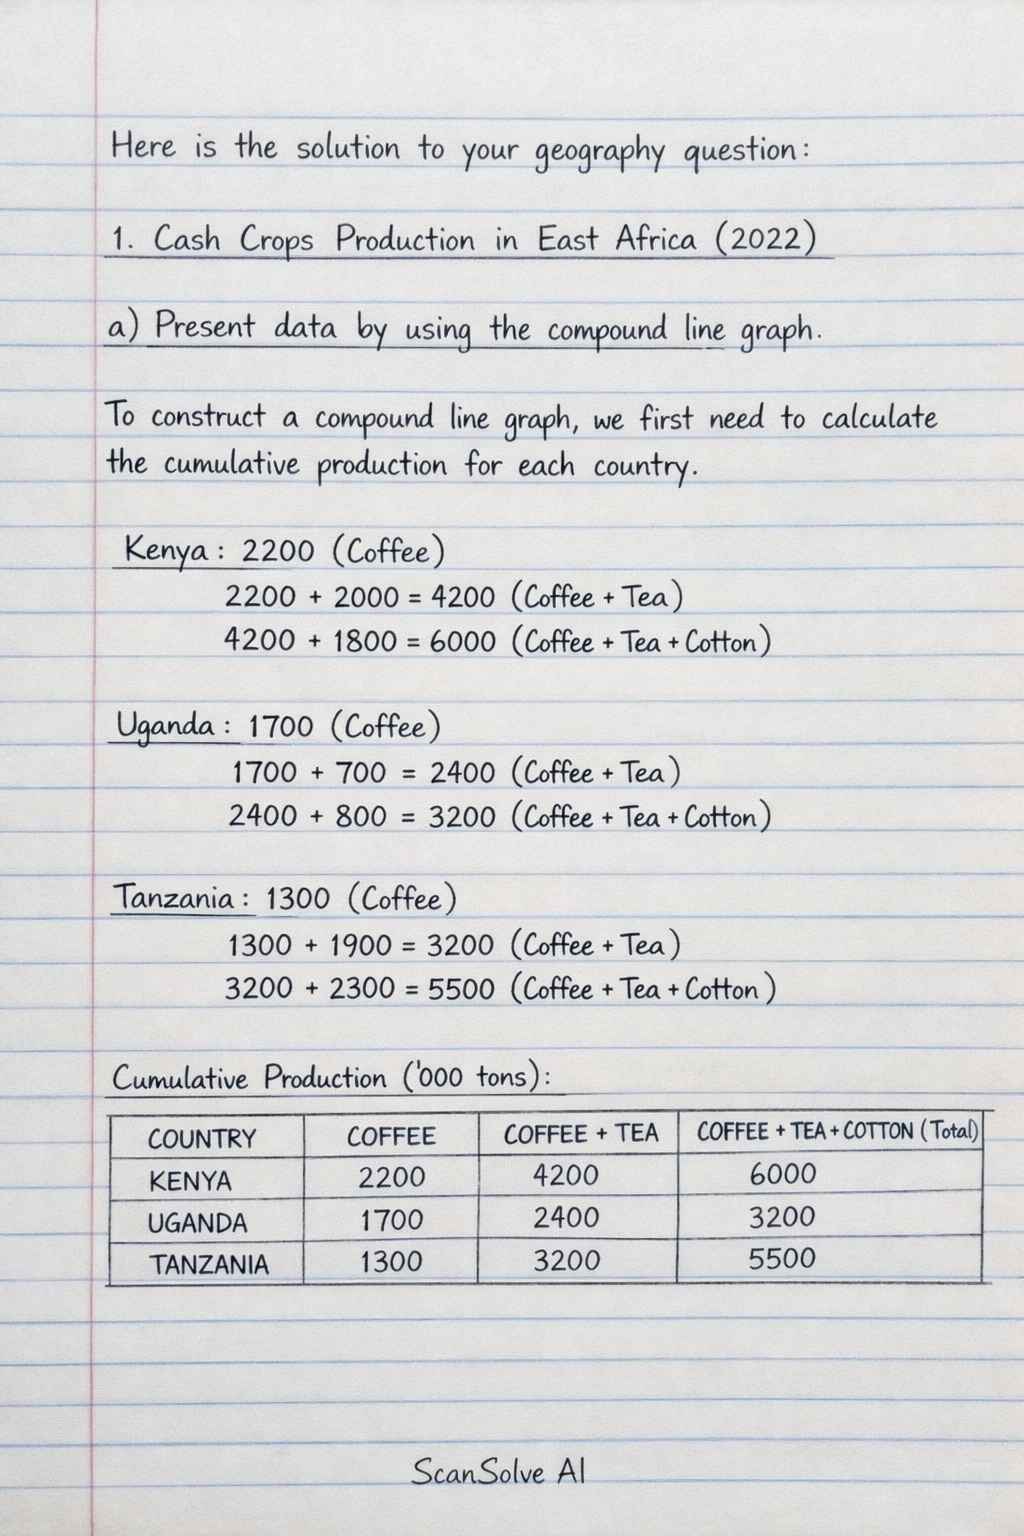 Here is the solution to your geography question:
1. Cash Crops Production in East Africa (2022)
a) Present data by using the compound line graph.
To construct a compound line graph, we first need to calculate
the cumulative production for each country.
Kenya: 2200 (Coffee)
2200 + 2000 = 4200 (Coffee + Tea)
4200 + 1800 = 6000 (Coffee + Tea + Cotton)
Uganda: 1700 (Coffee)
1700 + 700 = 2400 (Coffee + Tea)
2400 + 800 = 3200 (Coffee + Tea + Cotton)
Tanzania: 1300 (Coffee)
1300 + 1900 = 3200 (Coffee + Tea)
3200 + 2300 = 5500 (Coffee + Tea + Cotton)
Cumulative Production ('000 tons):
COUNTRY COFFEE COFFEE + TEA COFFEE + TEA + COTTON (Total)
KENYA 2200 4200 6000
UGANDA 1700 2400 3200
TANZANIA 1300 3200 5500
ScanSolve AI